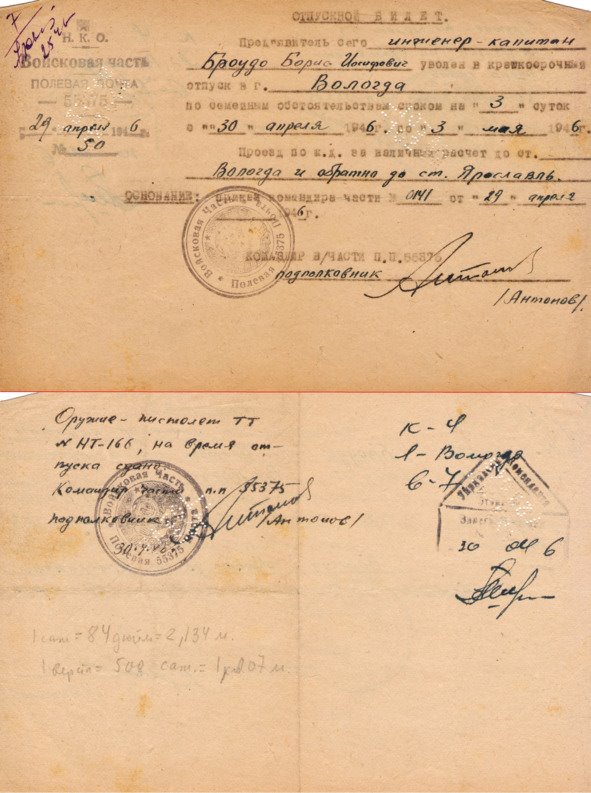 7
ОТПУСКНОЙ БИЛЕТ.
Н.К.О.
Войсковая часть
ПОЛЕВАЯ ПОЧТА
55375
"29" апреля 1946
№ 50
Пред'явитель сего инженер-капитан
Броудо Борис Иосифович уволен в краткосрочный
отпуск в г. Вологда
по семейным обстоятельствам сроком на "3" суток
с "30" апреля 1946г. по "3" мая 1946г.
Проезд по ж.д. за наличный расчет до ст.
Вологда и обратно до ст. Ярославль.
ОСНОВАНИЕ: Приказ командира части № 0141 от "29" апреля
1946г.
КОМАНДИР В/ЧАСТИ П.П.55375
подполковник
/Антонов/.
Войсковая Часть
Полевая 55375
Оружие - пистолет ТТ
№ НТ-166, на время от-
пуска сдано.
Командир части п.п 55375
подполковник
/Антонов/
Войсковая Часть
Полевая 55375
к-ч
Вологда
6-7
30 04 6
1 саж = 84 дюйм = 2,134 м.
1 верста = 500 саж. =